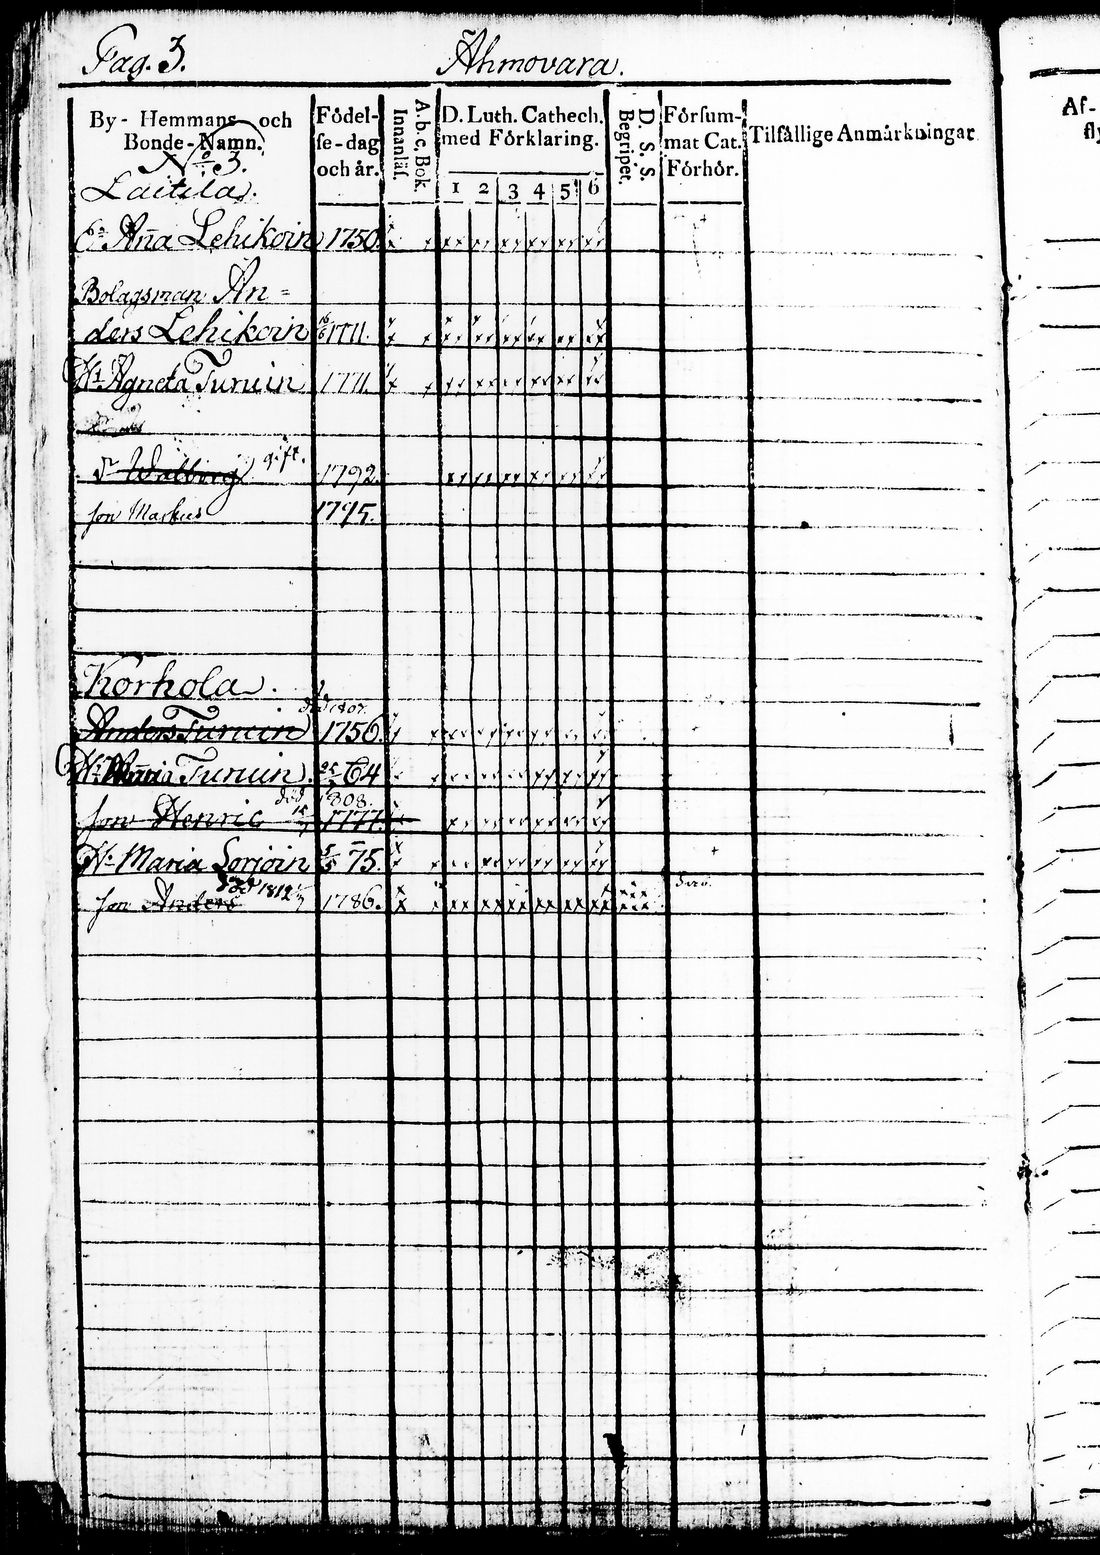 Pag. 3. Ahmovara.
By- Hemmans- och Bonde-Namn.
Födel-se-dag och år.
Innanläs.
A. b. c, Bok.
D. Luth. Cathech. med Förklaring.
1 2 3 4 5 6
D. S. S. Begriper.
Försum-mat Cat. Förhör.
Tilfällige Anmärkningar
Af-
No 3.
Laitila.
Anna Lehikoin 1750.
Bolagsman An=
ders Lehikoin 1771.
H. Agneta Turuin 1771.
dr Walborg gift. 1792.
son Markus 1795.
Korhola.
död 1807.
Anders Turuin 1756.
H. Maria Turuin. 64
död 1808.
son Henric 1777.
H. Maria Sorjoin 75.
död 1812
son Anders 1786.